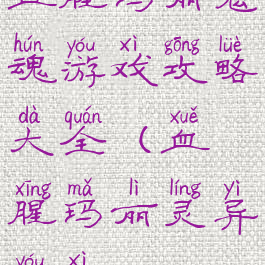 血腥玛丽鬼
hún yóu xì gōng lüè
魂游戏攻略
dà quán xuě
大全（血
xīng mǎ lì líng yì
腥玛丽灵异
yóu xì